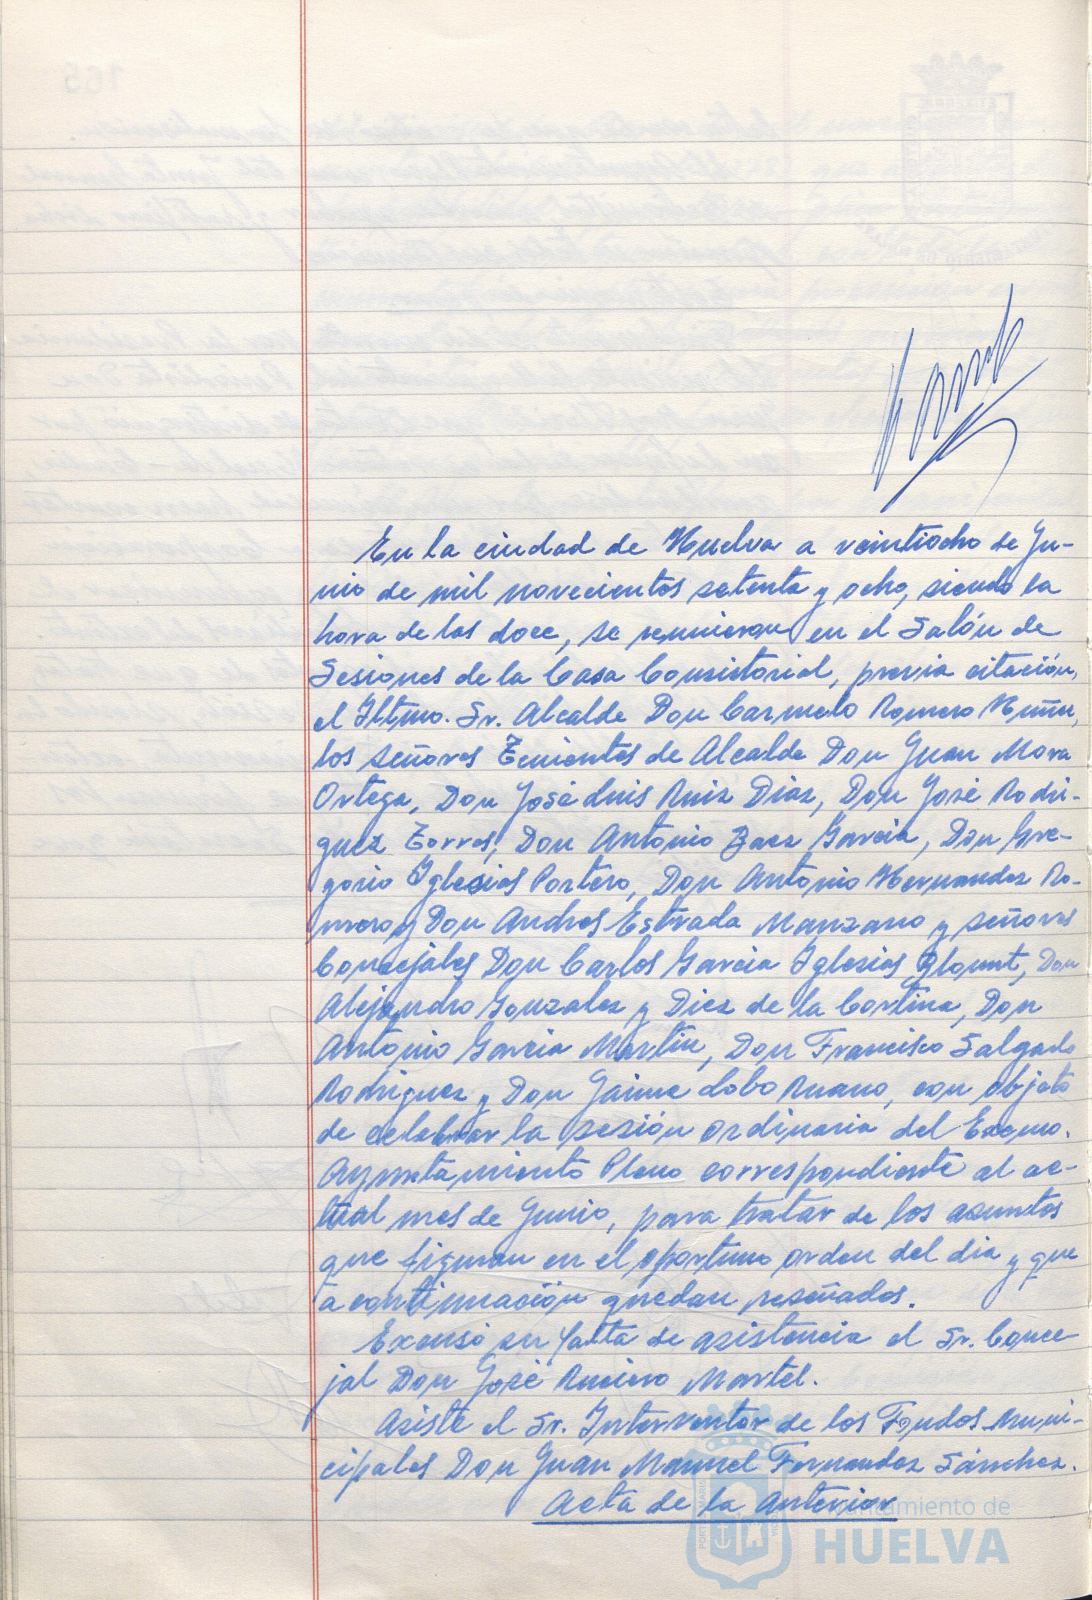 En la ciudad de Huelva a veintiocho de Ju-
nio de mil novecientos setenta y ocho, siendo la
hora de las doce, se reunieron en el Salón de
Sesiones de la Casa Consistorial, previa citación,
el Iltmo. Sr. Alcalde Don Carmelo Romero Núñez,
los señores Tenientes de Alcalde Don Juan Mora
Ortega, Don José Luis Ruiz Díaz, Don José Rodri-
guez Torres, Don Antonio Baez García, Don Gre-
gorio Iglesias Portero, Don Antonio Hernandez Ro-
mero y Don Andres Estrada Manzano y señores
Concejales Don Carlos García Iglesias Blount, Don
Alejandro Gonzalez y Diez de la Cortina, Don
Antonio García Martín, Don Francisco Salgado
Rodriguez y Don Jaime Lobo Ruano, con objeto
de celebrar la sesión ordinaria del Excmo.
Ayuntamiento Pleno correspondiente al ac-
tual mes de Junio, para tratar de los asuntos
que figuran en el oportuno orden del dia y que
a continuación quedan reseñados.
Excusó su falta de asistencia el Sr. Conce
jal Don José Martel.
Asiste el Sr. Interventor de los Fondos Muni-
cipales Don Juan Manuel Fernandez Sánchez.
Acta de la Anterior
Ayuntamiento de
HUELVA